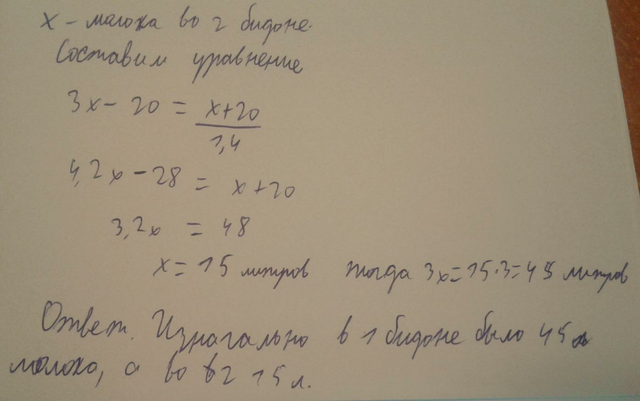 x – молока во 2 бидоне.
Составим уравнение
3x – 20 = x+20 / 1,4
4,2x – 28 = x+20
3,2x = 48
x = 15 литров тогда 3x=15·3=45 литров
Ответ. Изначально в 1 бидоне было 45 л
молоко, а во в 2 15 л.